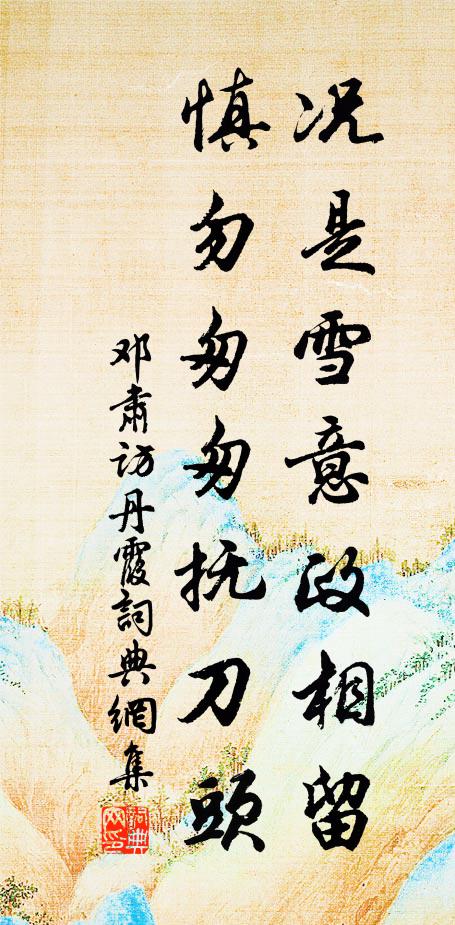 况是雪意政相留
慎勿匆匆抚刀頭
邓肃访丹霞詞典網集